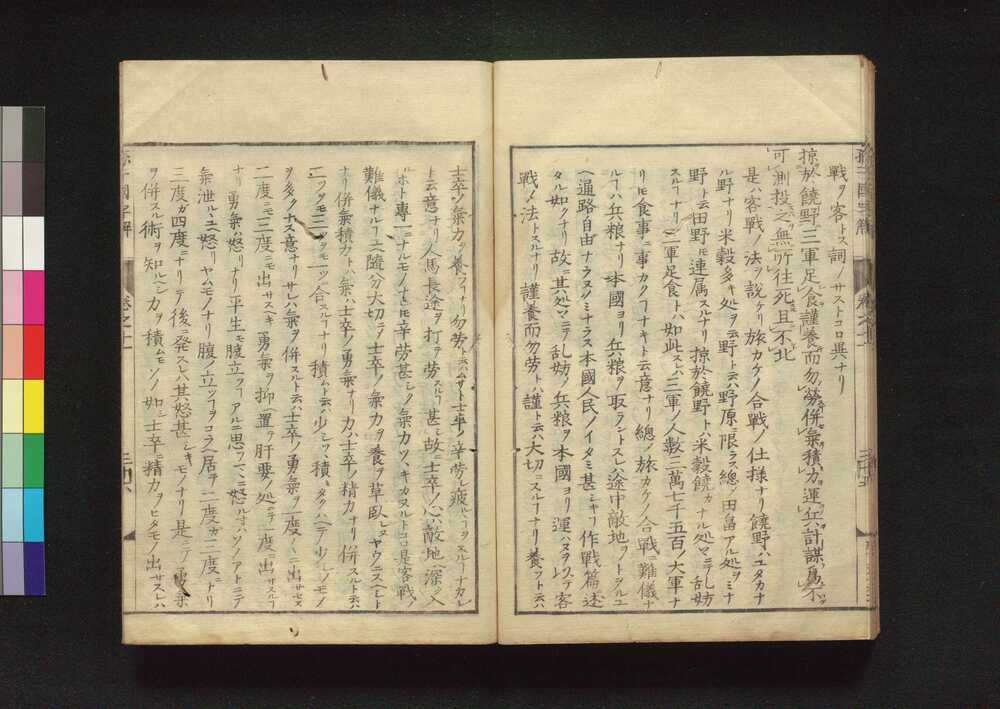 戰ヲ客トス詞ノサストコロ異ナリ
掠於饒野三軍足食謹養而勿勞併氣積力運兵計謀爲不
可測投之無所往死且不北
是ハ客戰ノ法ヲ說ケリ旅カケノ合戰ノ仕様ナリ饒野ハユタカナ
ル野ナリ米穀多キ処ヲ云野ト云ハ野原ニ限ラス總シテ田畠アル処ヲミナ
野ト云田野モ連属スルナリ掠於饒野トハ米穀饒カナル処マニテ乱妨
スルナリ三軍足食トハ如此スレハ三軍ノ人数三萬七千五百ノ大軍ナ
リモ食事ニ事カクフナキト云意ナリ總シテ旅カケノ合戰ノ難儀ナ
ルハ兵粮ナリ本國ヨリ兵粮ヲ取ラントスレハ途中敵地ヲトヲルユ
へ通路自由ナラスノミナラス本國人民ノイタミ甚シキフ作戰篇ニ述
タル如クナリ故ニ其処マニテ乱妨シ兵粮ヲ本國ヨリ運ハヌヲ以テ客
戰ノ法トスルナリ謹養而勿労トハ謹ト云ハ大切ニスルフナリ養フト云ハ
士卒ノ氣力ヲ養フフナリ勿勞ト云ハムサト士卒ヲ辛労シ疲ルヽフヲスルフナカレ
ト云意ナリ人馬長途ヲ打テ労スルフ甚シ故ニ士卒ノ心ハ敵地ニ深ク入
ホト專一ニナルモノナレトモ辛労甚シケレハ氣力ツヽキカヌルトコロ是客戰ノ
難儀ナルユヘ隨分大切ニシテ士卒ノ氣力ヲ養ヒテ草臥レヌヤウニスヘシト
ナリ併氣積力トハ氣ハ士卒ノ勇氣ナリ力ハ士卒ノ精力ナリ併スルト云ハ
二ツノモノ三ツノモノヲ一ツニ合スルフナリ積ムト云ハ少シツヽ積ミタクハヘテ少シノモノ
ヲ多クナス意ナリサレハ氣ヲ併スルト云ハ士卒ノ勇氣ヲ一度ヽニ出サセス
二度ニモ三度ニモ出サスヘキ勇氣ヲ抑ヘ置テ肝要ノ処ニテ一度ニ出サスルフ
ナリ勇氣ハ怒リナリ平生モ腹立フアルニ思フマヽニ怒ルトキハソノアトニテ
氣泄ルヽユヘ怒リヤムモノナリ腹ノ立ツフヲコラヘ居テ一度カ二度ナリ
三度カ四度ニナリテ後ニ発スレハ其怒甚シキモノナリ是ニテ勇氣
ヲ併スル術ヲ知ルヘシ力ヲ積ムモソノ如ク士卒ノ精力ヲヒタモノ出サスレハ